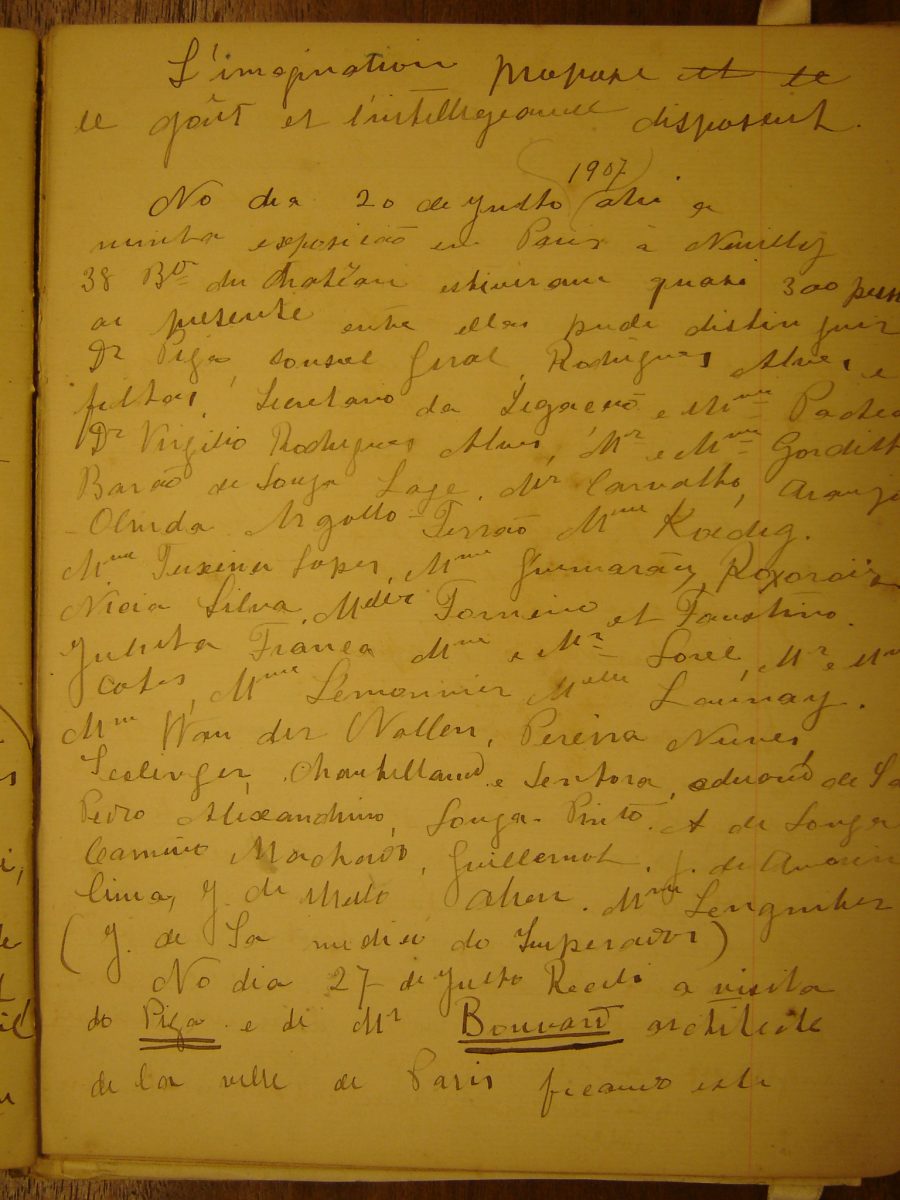 L'imagination propose et le
le goût et l'intelligeance disposent.
1907
No dia 20 de Julho abri a
minha exposição em Paris à Neuilly
38 Bd du Chatêau estiveram quasi 300 pesso
as presente entre ellas pude distinguir
Dr Piza, Consul Geral, Rodrigues Alves, e
filhas, Secretario da Legação e Mme
Dr Virgilio Rodrigues Alves, Mr e Mme
Barão de Souza Lage. Mr Carvalho, Araujo
Argollo-Ferrão Mme
Mme Teixeira Lopes, Mme Guimarães,
Nicia Silva, Mdlles et Faustino.
Julieta França Mme e Mr Sorel, Mr e Mme
Mme Lemonnier Melle Launay.
Mme Wan der Nollen, Pereira Nunes
e Senhora, de Sa
Pedro Alexandrino, Souza-Pinto. A de Souza
Camino Machado, Guillemot, J. de Amorin
Lima, J. de Mello Mme
(J. de Sa medico do Imperador)
No dia 27 de Julho Recebi a visita
do Piza e de Mr Bouvard architecte
de la ville de Paris ficando este